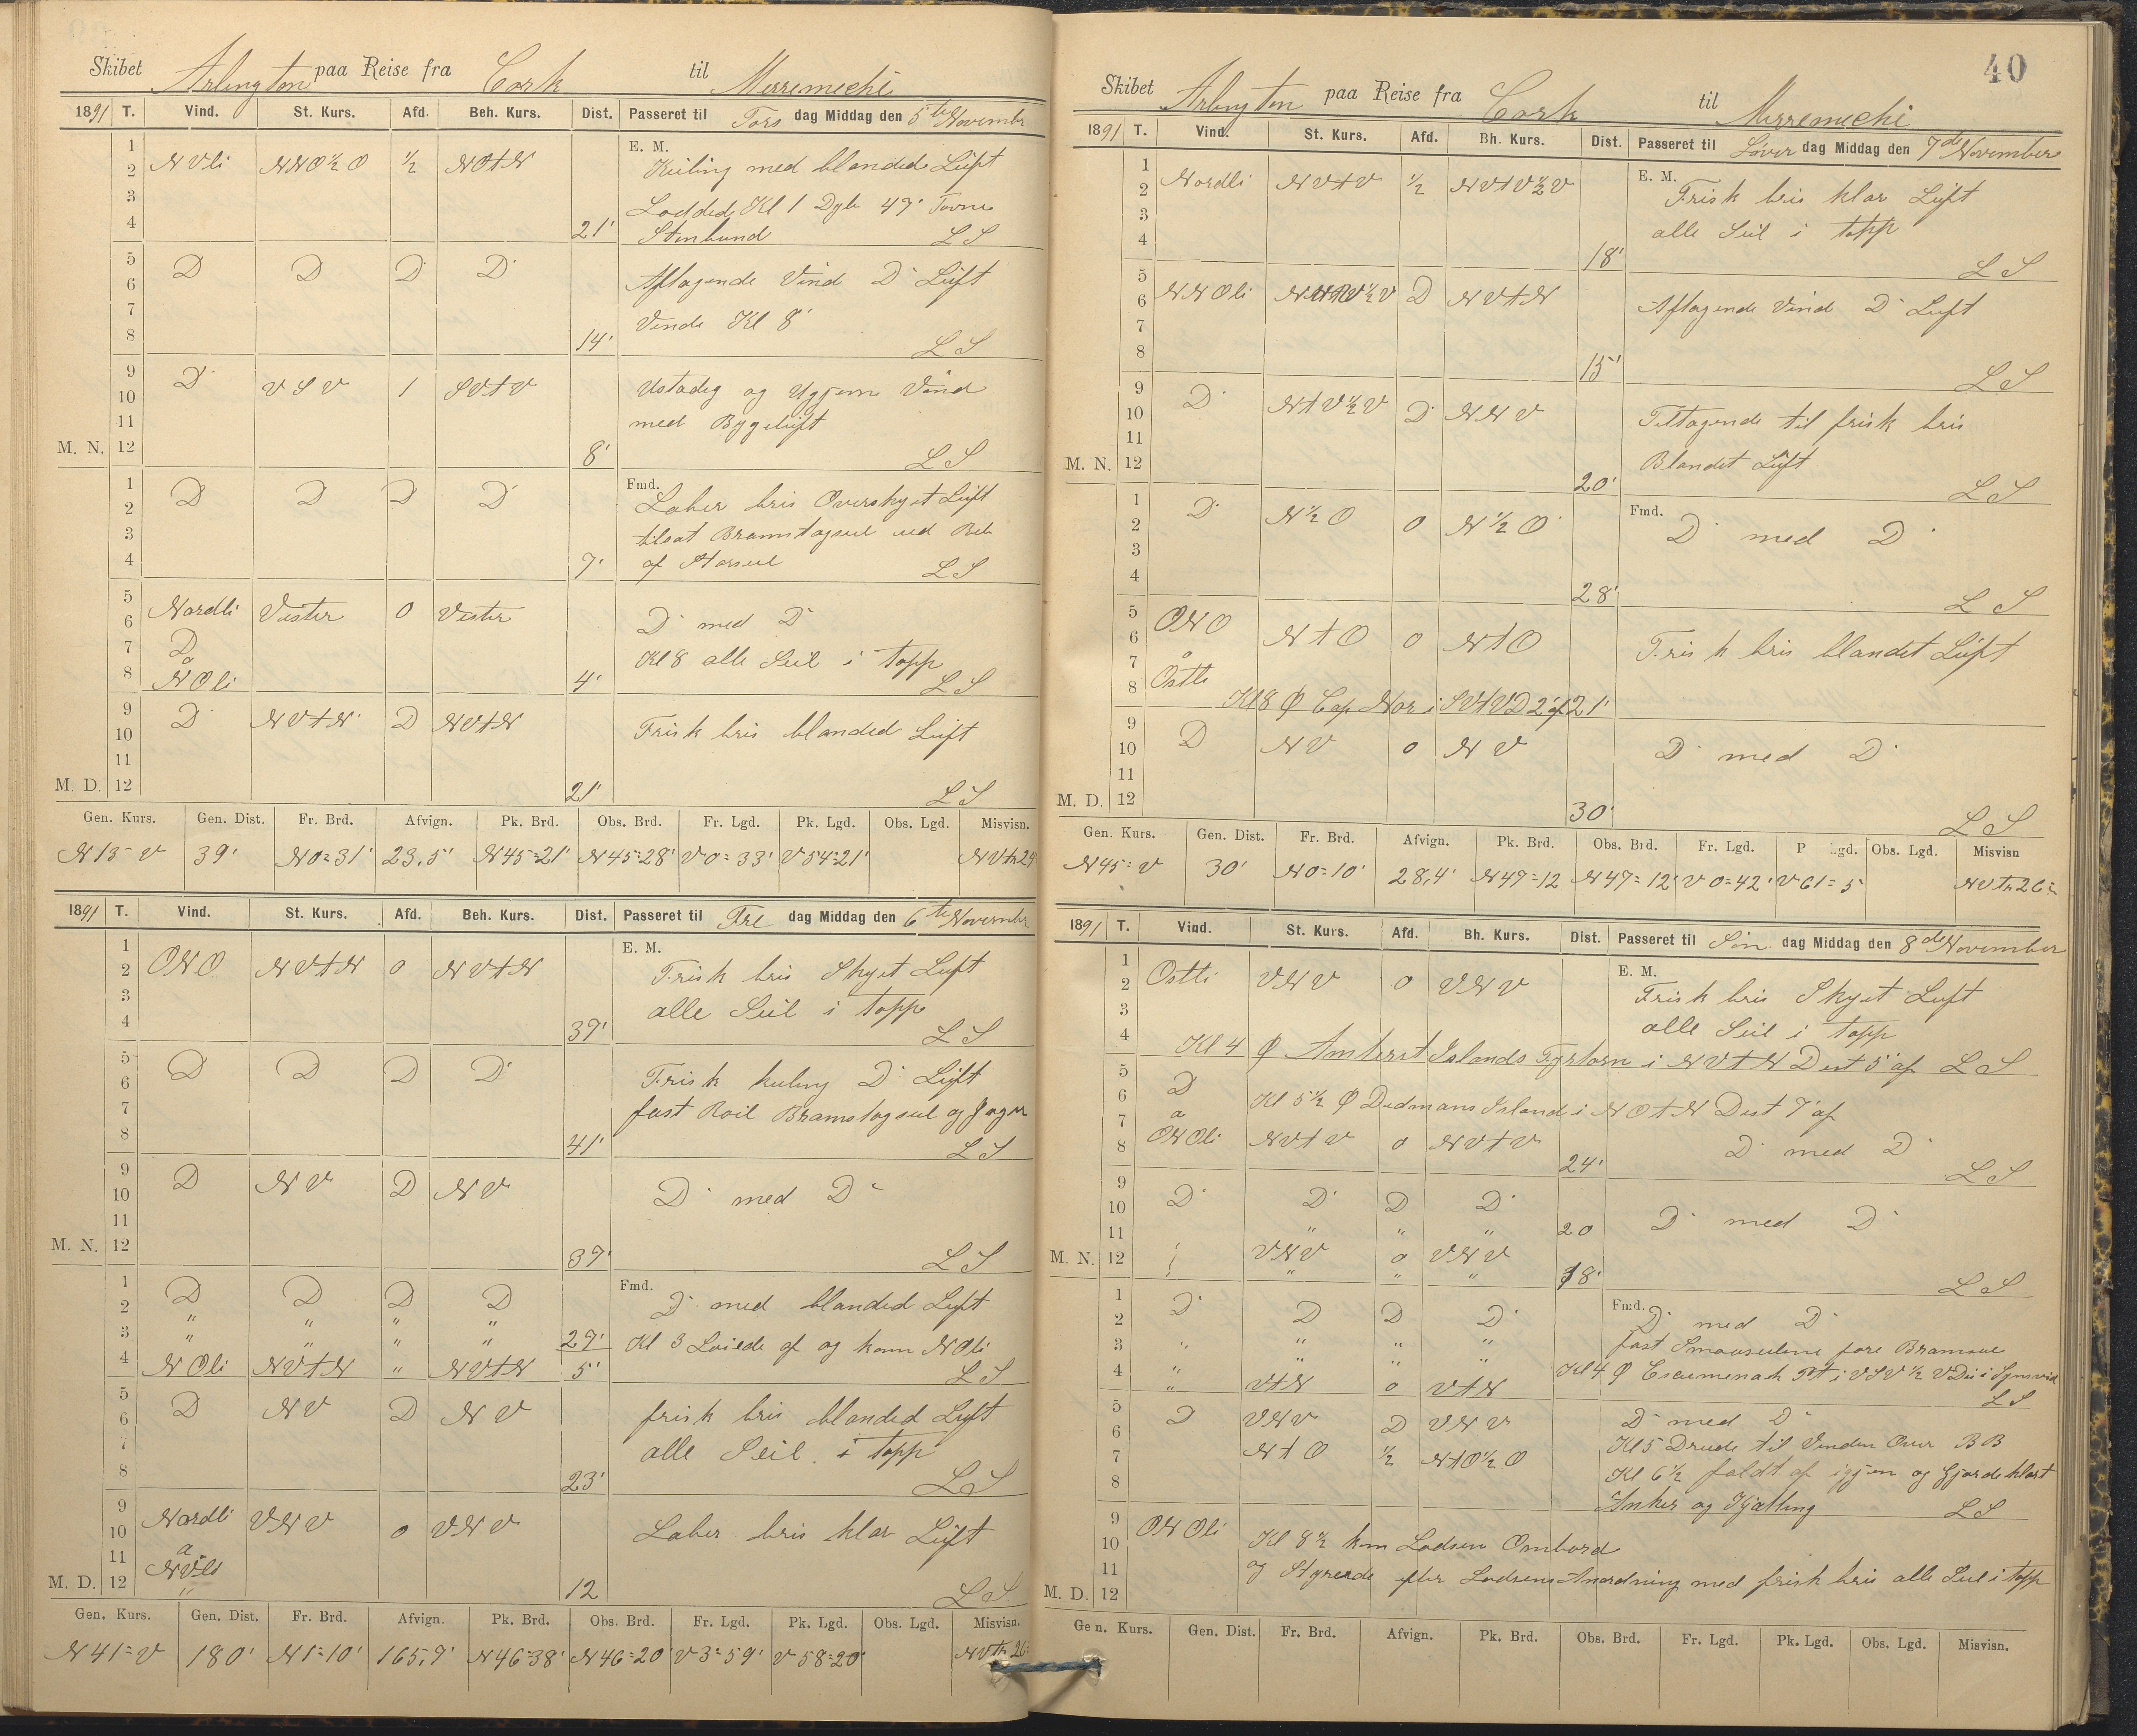 Skibet Arlington paa Reise fra Cork til Merremechi
1891 T. Vind. St. Kurs. Afd. Beh. Kurs. Dist. Passeret til Tors dag Middag den 5te Novembr
1
2 NVli NNO½O ½ NOtN E. M. Kuling med blanded Luft
3 Lodded Kl 1 Dyb 49' Favne
4 21' Stenbund LS
5
6 D D D D Aftagende Vind D Luft
7 Vende Kl 8'
8 14' LS
9
10 D VSV 1 SVtV Ustadig og Ugjem Vind
11 med Bygeluft
M. N. 12 8' LS
1 Fmd.
2 D D D D Laber bris Overskyet Luft
3 tilsat Bramstagseil ved
4 7' af Storseil LS
5
6 Nordli Vester 0 Vester D med D
7 D
a Kl 8 alle Seil i topp
8 NOli 4' LS
9
10 D NVtN D NVtN Frisk bris blanded Luft
11
M. D. 12 21' LS
Gen. Kurs. Gen. Dist. Fr. Brd. Afvign. Pk. Brd. Obs. Brd. Fr. Lgd. Pk. Lgd. Obs. Lgd. Misvisn.
N 15 V 39' N0=31' 23,5' N45=21' N45=28' V0=33' V54=21'
1891 T. Vind. St. Kurs. Afd. Beh. Kurs. Dist. Passeret til Fre dag Middag den 6te Novembr
1 E. M.
2 ONO NVtN 0 NVtN Frisk bris Skyet Luft
3 alle Seil i topp
4 39' LS
5
6 D D D D Frisk kuling D Luft
7 fast Roil Bramstagseil og Jager
8 41' LS
9
10 D NV D NV D med D
11
M. N. 12 39' LS
1 Fmd.
2 D D D D D med blanded Luft
3 " " " " 29' Kl 3 Loiede af og kom NOli
4 NOli NVtN " NVtN 5' LS
5
6 D NV D NV frisk bris blanded Luft
7 alle Seil i topp
8 23' LS
9
10 Nordli VNV 0 VNV Laber bris klar Luft
11 a
M. D. 12 12 LS
Gen. Kurs. Gen. Dist. Fr. Brd. Afvign. Pk. Brd. Obs. Brd. Fr. Lgd. Pk. Lgd. Obs. Lgd. Misvisn.
N 41=V 180' N1=10' 165,9' N46=38' N46=20 V3=59' V58=20'
40
Skibet Arlington paa Reise fra Cork til Merremechi
1891 T. Vind. St. Kurs. Afd. Bh. Kurs. Dist. Passeret til Løver dag Middag den 7de November
1 E. M.
2 Nordli NVtV ½ NVtV½V Frisk bris klar Luft
3 alle Seil i topp
4 18' LS
5
6 NNOli D NVtN Aftagende Vind D Luft
7
8 15' LS
9
10 D NtV½V D NNV Tiltagende til frisk bris
11 Blandet Luft
M. N. 12 20' LS
1 Fmd.
2 D N½O 0 N½O D med D
3
4 28' LS
5 ONO
6 a NtO 0 NtO Frisk bris blandet Luft
7 Ostli
8 Kl 8 Ø Cap Nor i SVtV D 2' af 21'
9
10 D NV 0 NV D med D
11
M. D. 12 30' LS
Gen. Kurs. Gen. Dist. Fr. Brd. Afvign. Pk. Brd. Obs. Brd. Fr. Lgd. P lgd. Obs. Lgd. Misvisn
N45=V 30' N0=10' 28,4' N47=12 N47=12' V0=42' V61=5'
1891 T. Vind. St. Kurs. Afd. Bh. Kurs. Dist. Passeret til Søn dag Middag den 8de November
1 E. M.
2 Ostli VNV 0 VNV Frisk bris Skyet Luft
3 alle Seil i topp
4 Kl 4 Ø Amherst Islands Fyrtorn i NVtN Dist 5' af LS
5
6 D Kl 5½ Ø Dedmans Island i NOtN Dist 7' af
7 a
8 ONOli NVtV 0 NVtV 24' D med D LS
9
10 D D D D D med D
11 " " " 20
M. N. 12 VNV 0 VNV
" " " 18' LS
1 Fmd.
2 D D D D D med D
3 " " " " fast Smaaseilene fore
4 " " " " Kl 4 Ø Escumenack Pt i VSV½V
" VtN 0 VtN LS
5
6 D VNV D VNV D med D
7 NtO ½ NtO½O Kl 5 Dreide til Vinden Over BB
8 Kl 6½ faldt af igjen og Gjorde klart
Anker og Kjætting LS
9 ONOli
10 Kl 8½ kom Lodsen Ombord
11 og Styrede efter Lodsens Anordning med frisk bris alle Seil i topp
M. D. 12
Gen. Kurs. Gen. Dist. Fr. Brd. Afvign. Pk. Brd. Obs. Brd. Fr. Lgd. Pk. Lgd. Obs. Lgd. Misvisn.